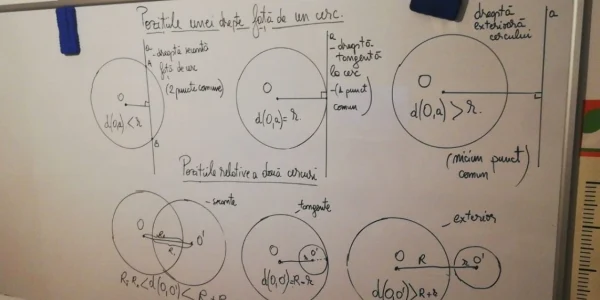 Pozițiile unei drepte față de un cerc.
a
- dreaptă secantă
față de cerc
(2 puncte comune)
A
O
d(O,a) < r
B
a
- dreaptă
tangentă
la cerc
- (1 punct
comun
O
d(O,a) = r
dreaptă
exterioară
cercului
a
O
d(O,a) > r.
(niciun punct
comun)
Pozițiile relative a două cercuri
- secante
O
O'
< d(O,O') <
- tangente
O'
r
d(O,O') = R - r
- exterior
O
R
r
O'
d(O,O') > R + r